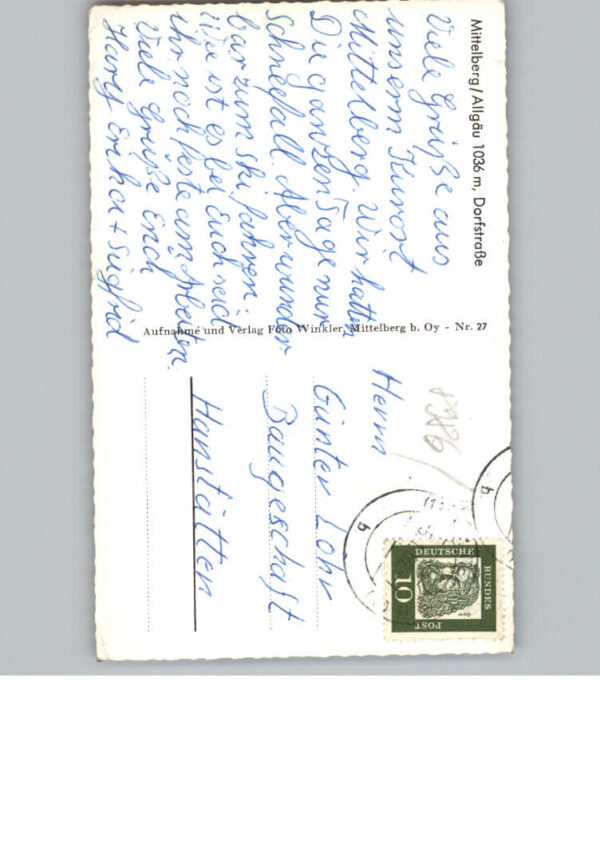 Mittelberg/Allgäu 1036 m, Dorfstraße
Viele Grüße aus
unserm Kurort
Mittelberg. Wir hatten
Die ganzen Tage nur
Schneefall. Aber wunder
bar zum Ski fahren.
Wie ist es bei Euch seid
ihr noch feste am Arbeiten.
Viele Grüße Euch
Hary Erika + Sigfrid
Aufnahme und Verlag Foto Winkler, Mittelberg b. Oy - Nr. 27
Herrn
Günter Lohr
Baugeschäft
Hanstätten
DEUTSCHE
BUNDES
POST
10
b
b